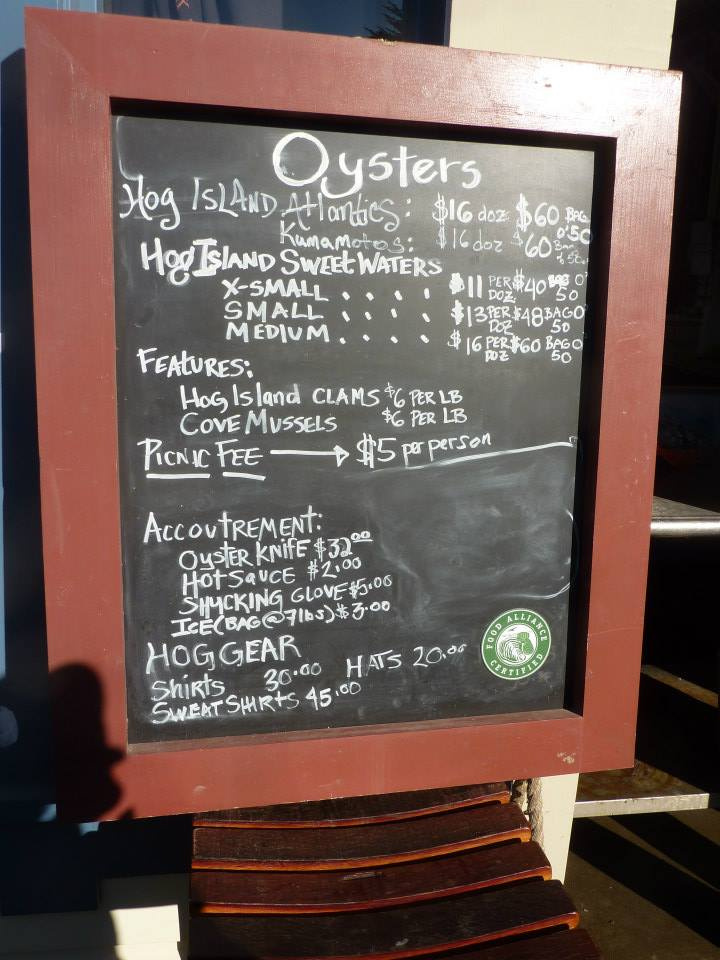 Oysters
Hog ISLAND Atlantics: $16 doz $60 BAG O'50
Kumamotos: $16 doz $60 BAG O'50
Hog ISLAND SWEETWATERS
X-SMALL . . . . $11 PER DOZ $40 BAG O 50
SMALL . . . . $13 PER DOZ $48 BAG O 50
MEDIUM . . . . $16 PER DOZ $60 BAG O 50
FEATURES:
Hog Island CLAMS $6 PER LB
COVE MUSSELS $6 PER LB
PICNIC FEE → $5 per person
ACCOUTREMENT:
OYSTER KNIFE $32.00
HOT SAUCE $2.00
SHUCKING GLOVE $5.00
ICE (BAG @ 7lbs) $3.00
HOG GEAR
Shirts 30.00 HATS 20.00
SWEATSHIRTS 45.00
FOOD ALLIANCE CERTIFIED